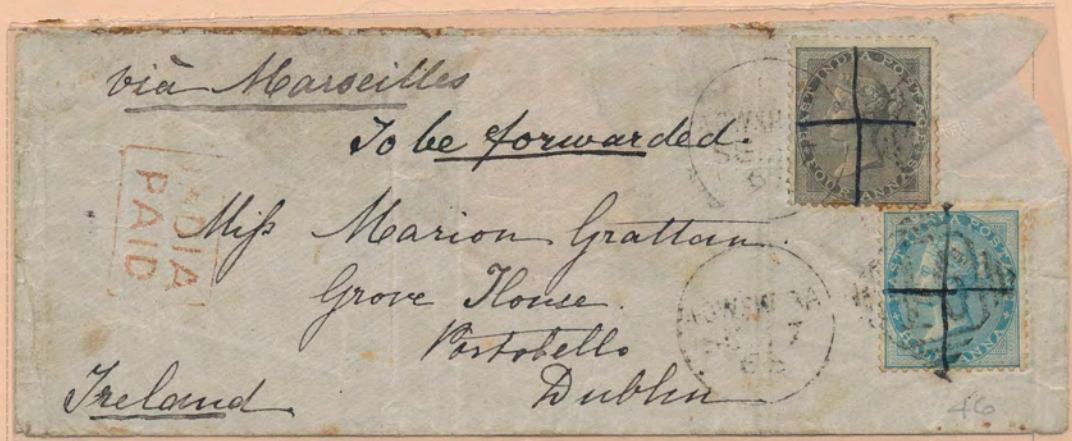 via Marseilles
To be forwarded.
INDIA
PAID
Miſs Marion Grattan.
Grove House.
Portobello
Dublin
Ireland
EAST INDIA POSTAGE
FOUR ANNAS
EAST INDIA POSTAGE
HALF ANNA
46